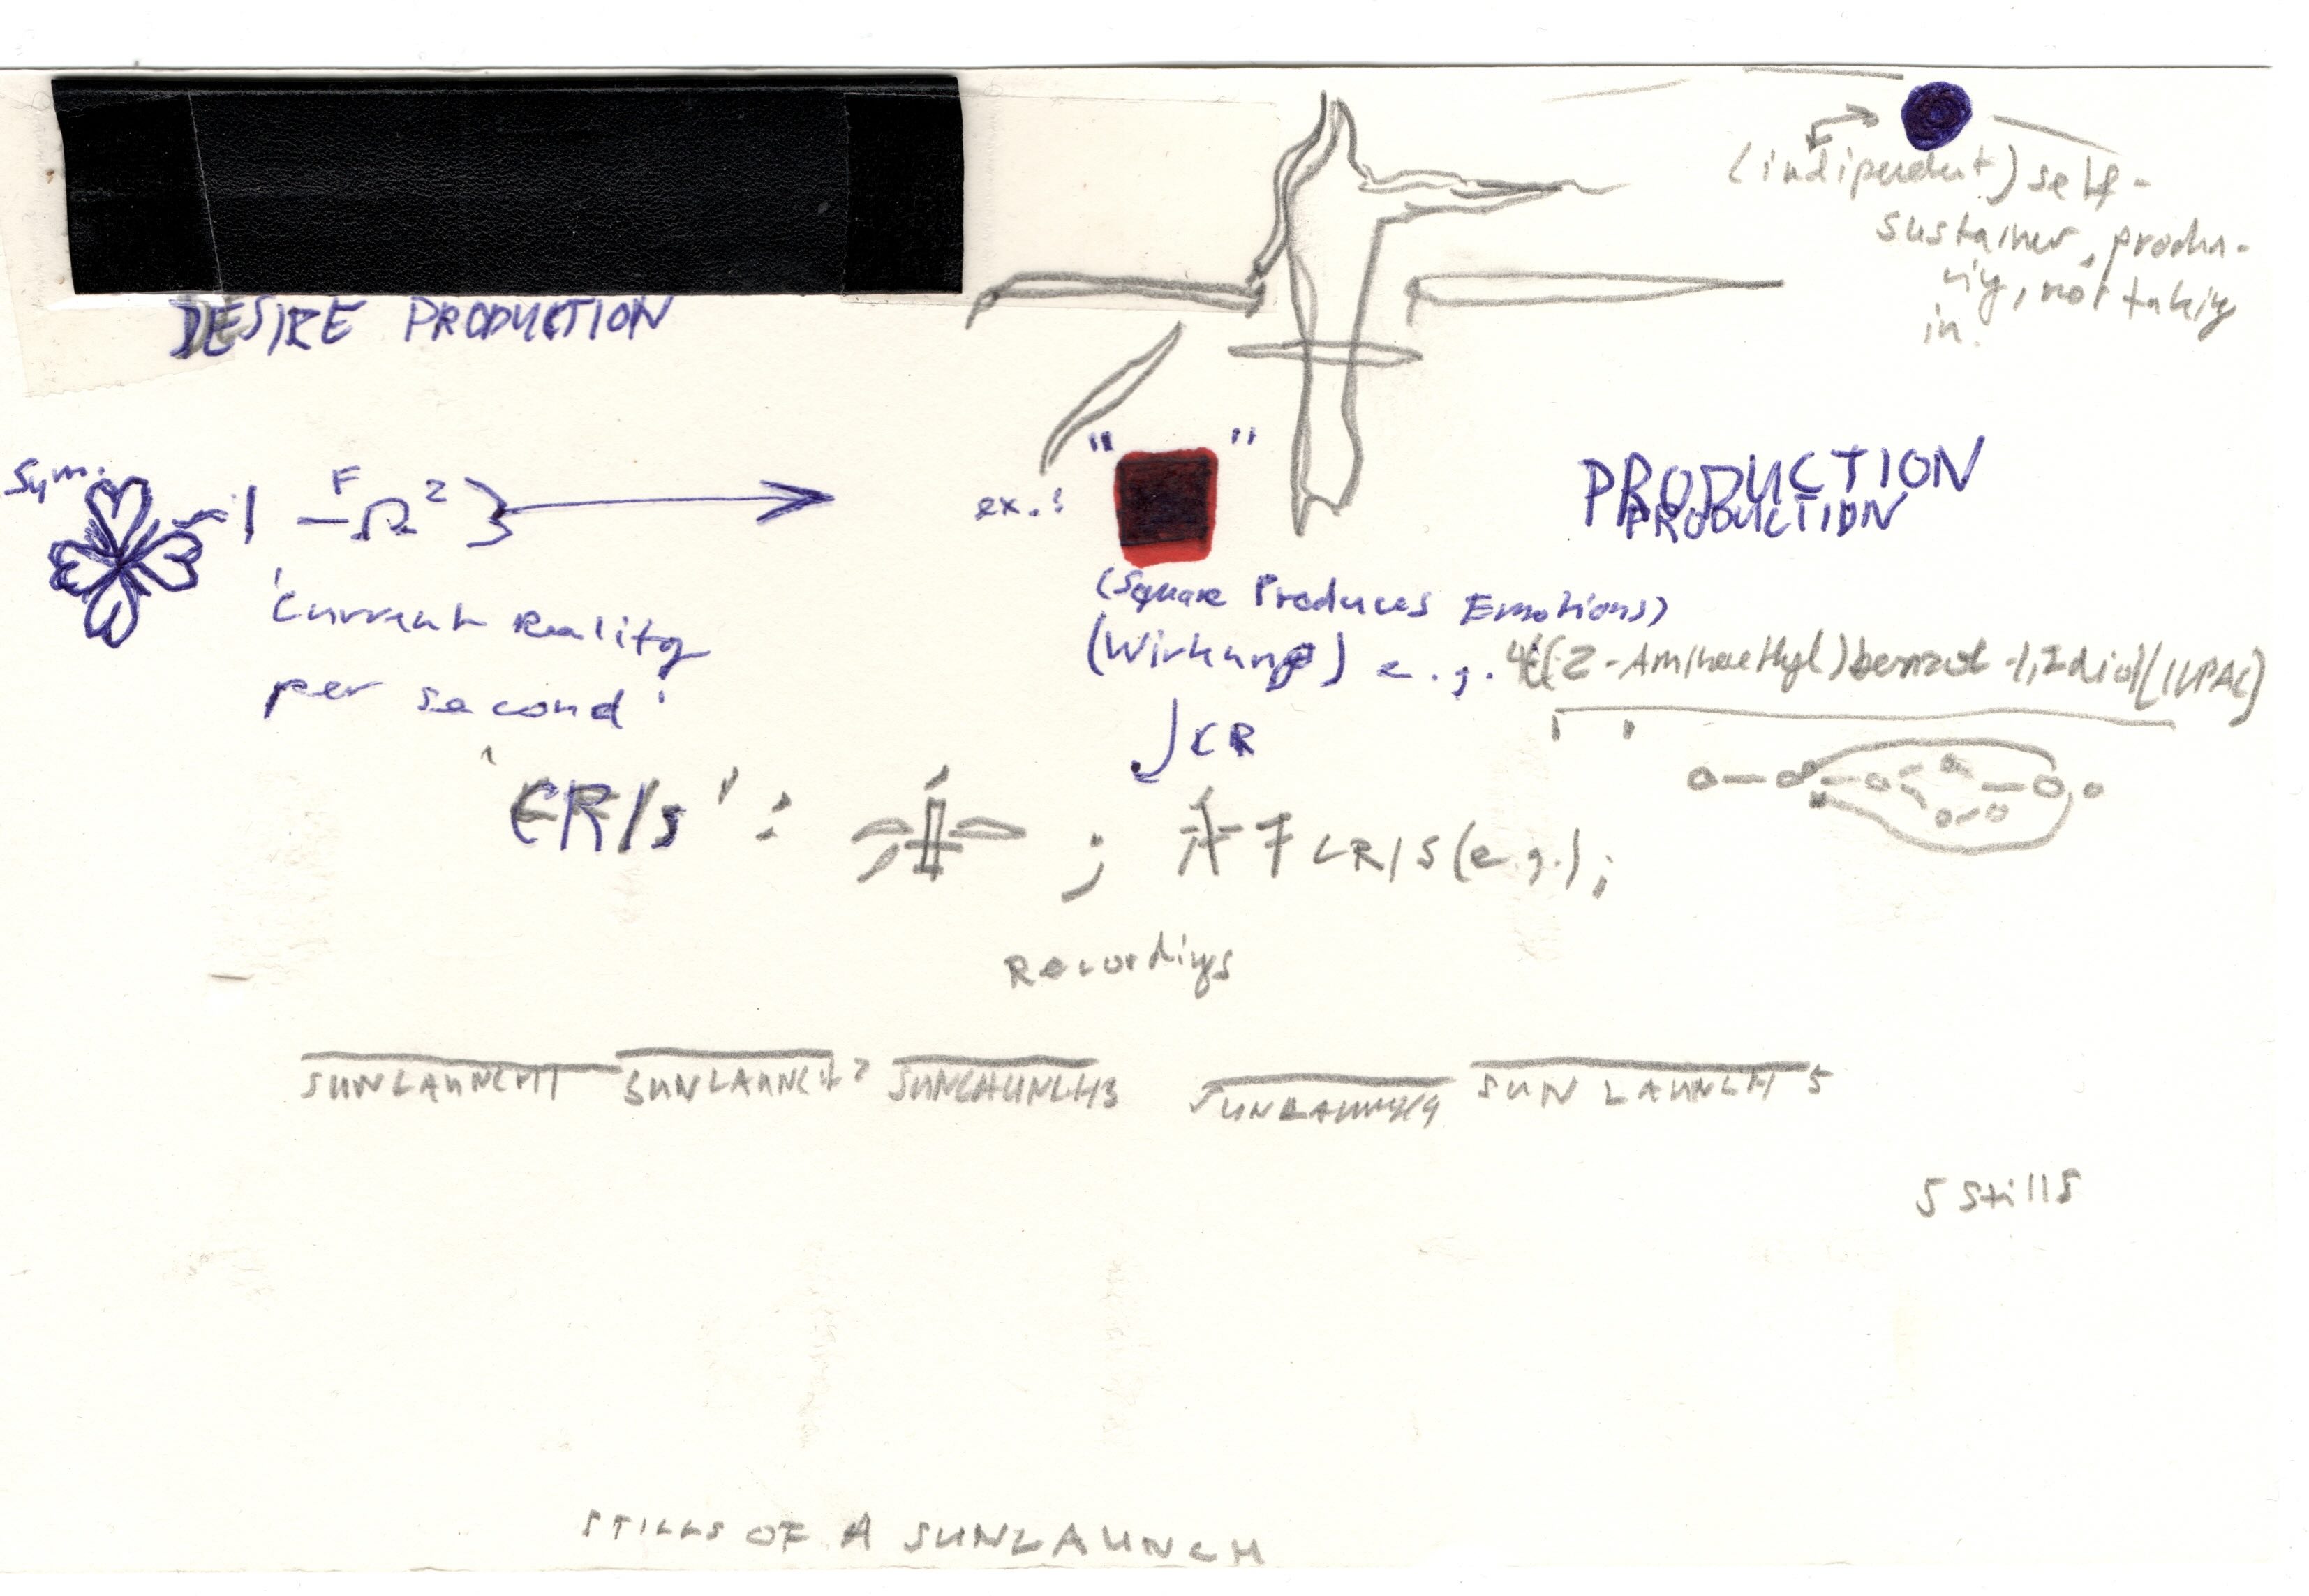 DESIRE PRODUCTION
(indipendent) self-
sustainer, produ-
cing, not taking
in.
Sym.
F
-Ω²}
'Current Reality
per second'
ex.:
" "
PRODUCTION
PRODUCTION
(Square Produces Emotions)
(Wirkung) e.g. 4-(2-Aminoethyl)benzol-1,2diol(IUPAC)
CR
'CR/s':
; CR/S (e.g.);
Recordings
SUNLAUNCH1 SUNLAUNCH2 SUNLAUNCH3 SUNLAUNCH4 SUN LAUNCH 5
5 Stills
STILLS OF A SUNLAUNCH